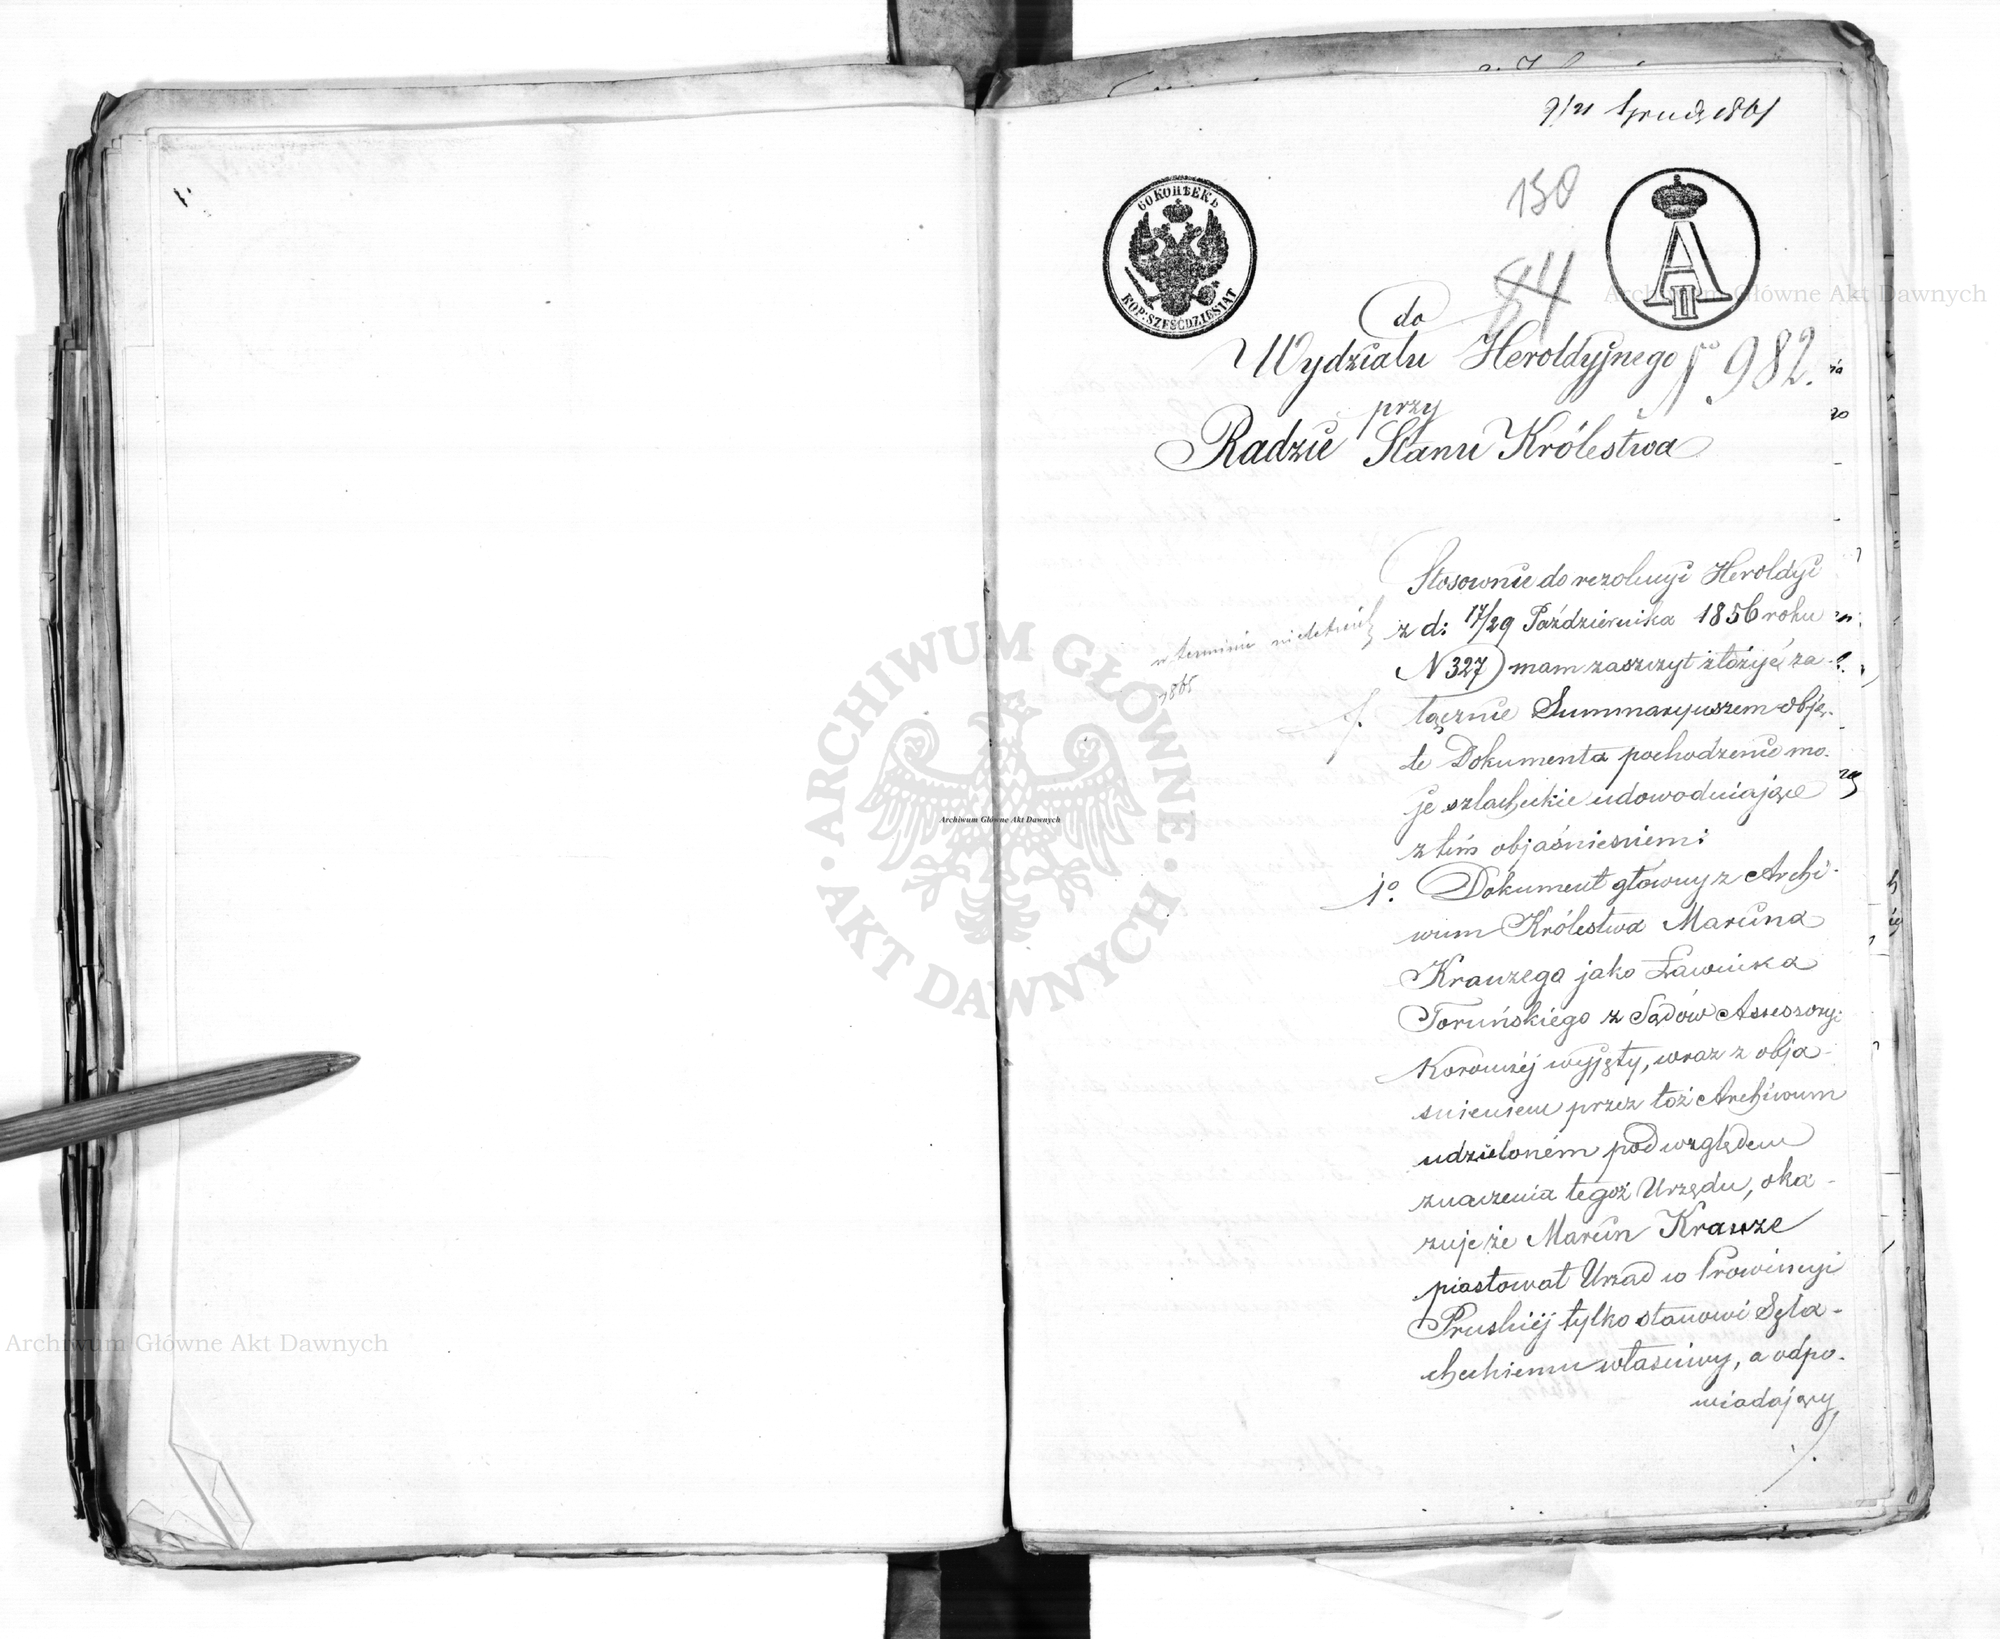 9/21 Grudz 1861
150
84
60 КОПѢЕКЪ
KOP. SZEŚĆDZIESIĄT
A II
do
Wydziału Heroldyjnego
982.
przy
Radzie Stanu Królestwa
Stosownie do rezolucyi Heroldyi
z d: 17/29 Października 1856 roku
N 327) mam zaszczyt złożyć za-
w terminie
1865
łącznie Summaryuszem obję-
te Dokumenta pochodzenie mo-
je szlacheckie udowodniające
z tém objaśnieniem:
1o. Dokument główny z Archi-
wum Królestwa Marcina
Krauzego jako Ławnika
Toruńskiego z Sądów Assessory:
Koronnéj wyjęty, wraz z obja-
śnieniem przez toż Archiwum
udzieloném pod względem
znaczenia tegoż Urzędu, oka-
zuje że Marcin Krauze
piastował Urząd w Prowincyi
Pruskiéj tylko stanowi Szla-
checkiemu właściwy, a odpo-
wiadający
ARCHIWUM GŁÓWNE AKT DAWNYCH
Archiwum Główne Akt Dawnych
Archiwum Główne Akt Dawnych
Archiwum Główne Akt Dawnych